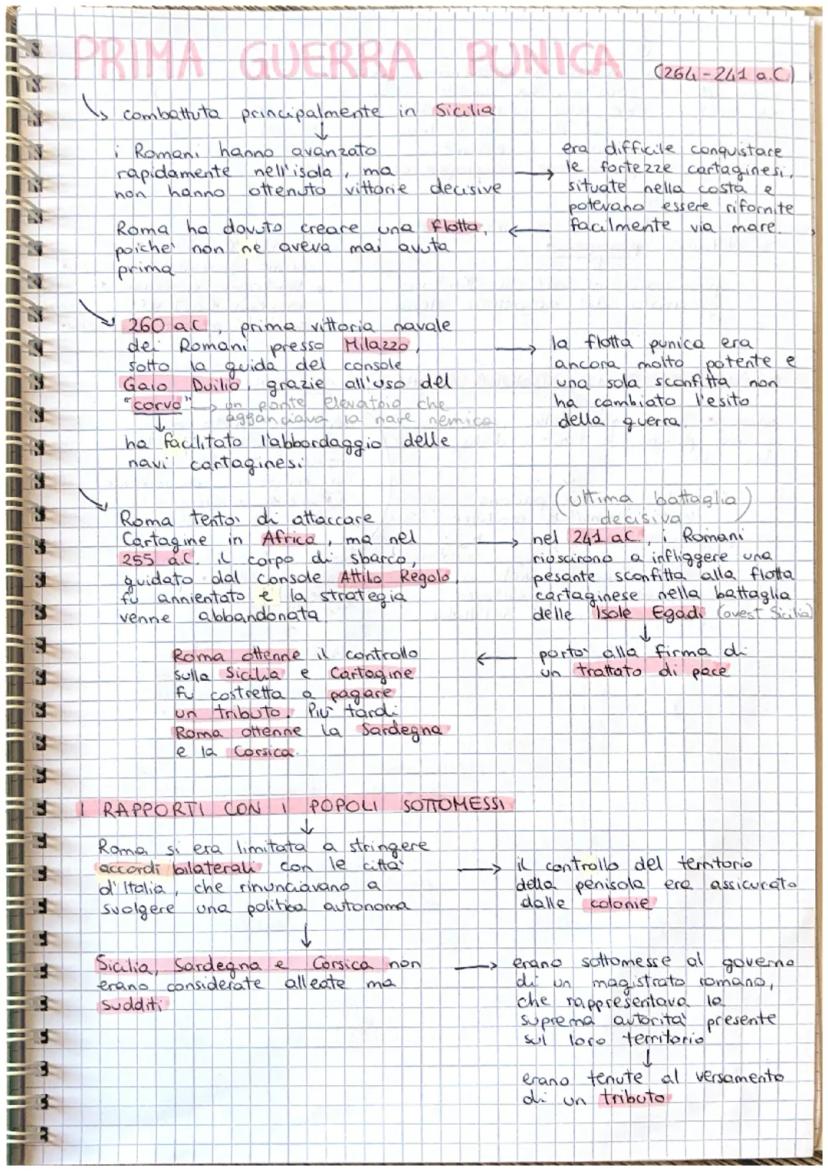 PRIMA GUERRA PUNICA (264-241 a.C)
combattuta principalmente in Sicilia
i Romani hanno avanzato
rapidamente nell'isola, ma
non hanno ottenuto vittorie decisive
era difficile conquistare
le fortezze cartaginesi,
situate nella costa e
potevano essere rifornite
facilmente via mare.
Roma ha dovuto creare una flotta,
poiche' non ne aveva mai avuta
prima
260 a.C, prima vittoria navale
dei Romani presso Milazzo,
sotto la guida del console
Gaio Duilio, grazie all'uso del
"corvo" → un ponte elevatoio che
agganciava la nave nemica
ha facilitato l'abbordaggio delle
navi cartaginesi
la flotta punica era
ancora molto potente e
una sola sconfitta non
ha cambiato l'esito
della guerra.
Roma tento' di attaccare
Cartagine in Africa, ma nel
255 a.C. il corpo di sbarco,
guidato dal console Attilo Regolo,
fu annientato e la strategia
venne abbandonata
(ultima battaglia)
decisiva
nel 241 a.C, i Romani
riuscirono a infliggere una
pesante sconfitta alla flotta
cartaginese nella battaglia
delle Isole Egadi (ovest Sicilia)
porto' alla firma di
un trattato di pace
Roma ottenne il controllo
sulla Sicilia e Cartagine
fu costretta a pagare
un tributo. Piu' tardi
Roma ottenne la Sardegna
e la Corsica.
I RAPPORTI CON I POPOLI SOTTOMESSI
Roma si era limitata a stringere
accordi bilaterali con le citta'
d'Italia, che rinunciavano a
svolgere una politica autonoma
il controllo del territorio
della penisola era assicurato
dalle colonie
Sicilia, Sardegna e Corsica non
erano considerate alleate ma
sudditi
erano sottomesse al governo
di un magistrato romano,
che rappresentava la
suprema autorita' presente
sul loro territorio
erano tenute al versamento
di un tributo